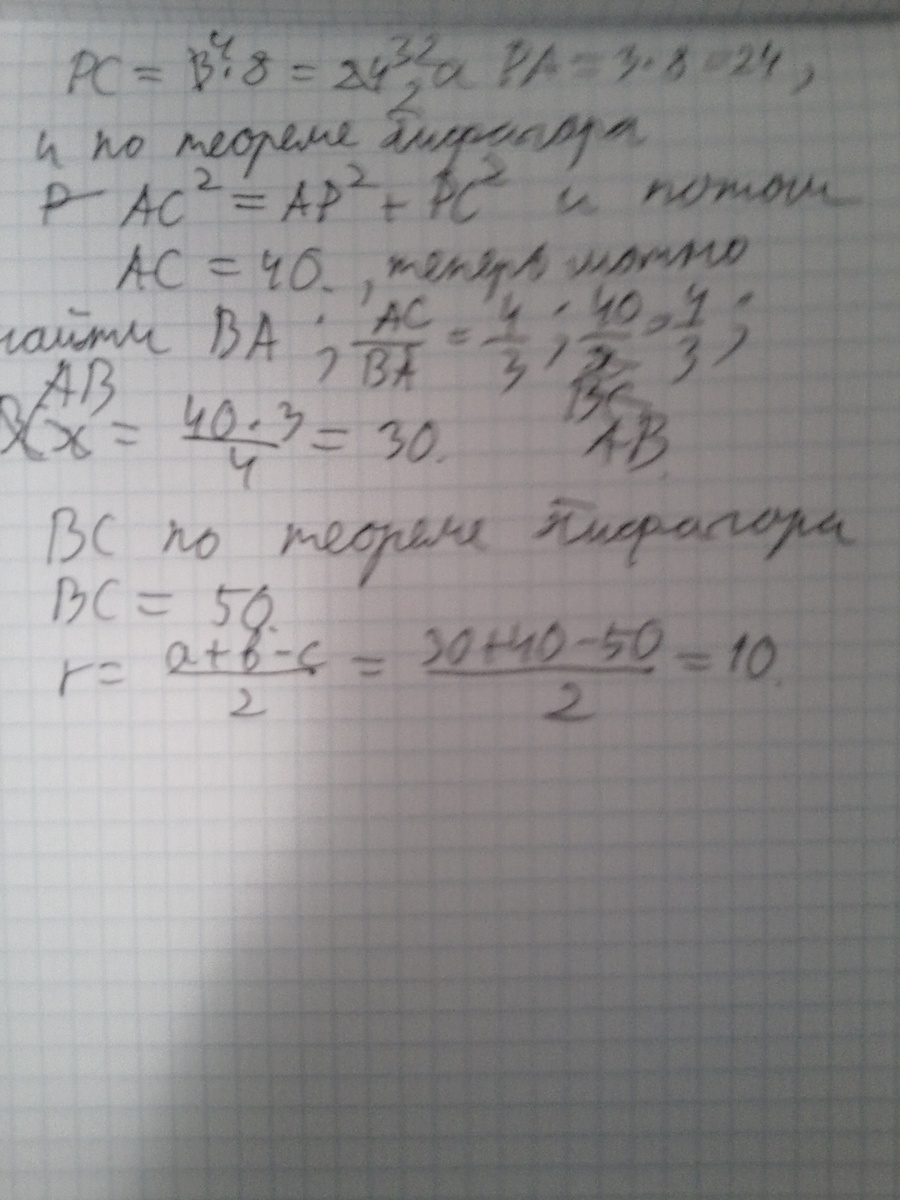 PC = 4·8 = 32, а PA = 3·8 = 24,
и по теореме Пифагора
AC² = AP² + PC² и потом
AC = 40., теперь можно
найти BA ; AC/BA = 4/3 ; 40/x = 4/3 ;
AB
x = 40·3/4 = 30. AB
BC по теореме Пифагора
BC = 50.
r = a+b-c/2 = 30+40-50/2 = 10.